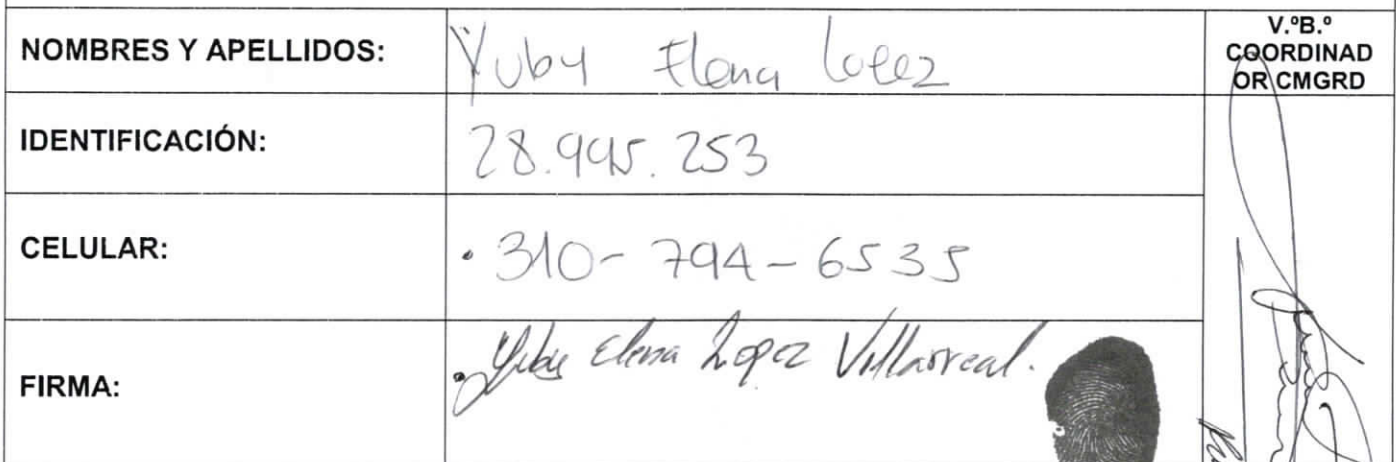 NOMBRES Y APELLIDOS: Yuby Elena Lopez
V.ºB.º
COORDINAD
OR CMGRD
IDENTIFICACIÓN: 28.995.253
CELULAR: · 310-794-6535
FIRMA: Yuby Elena Lopez Villarreal.